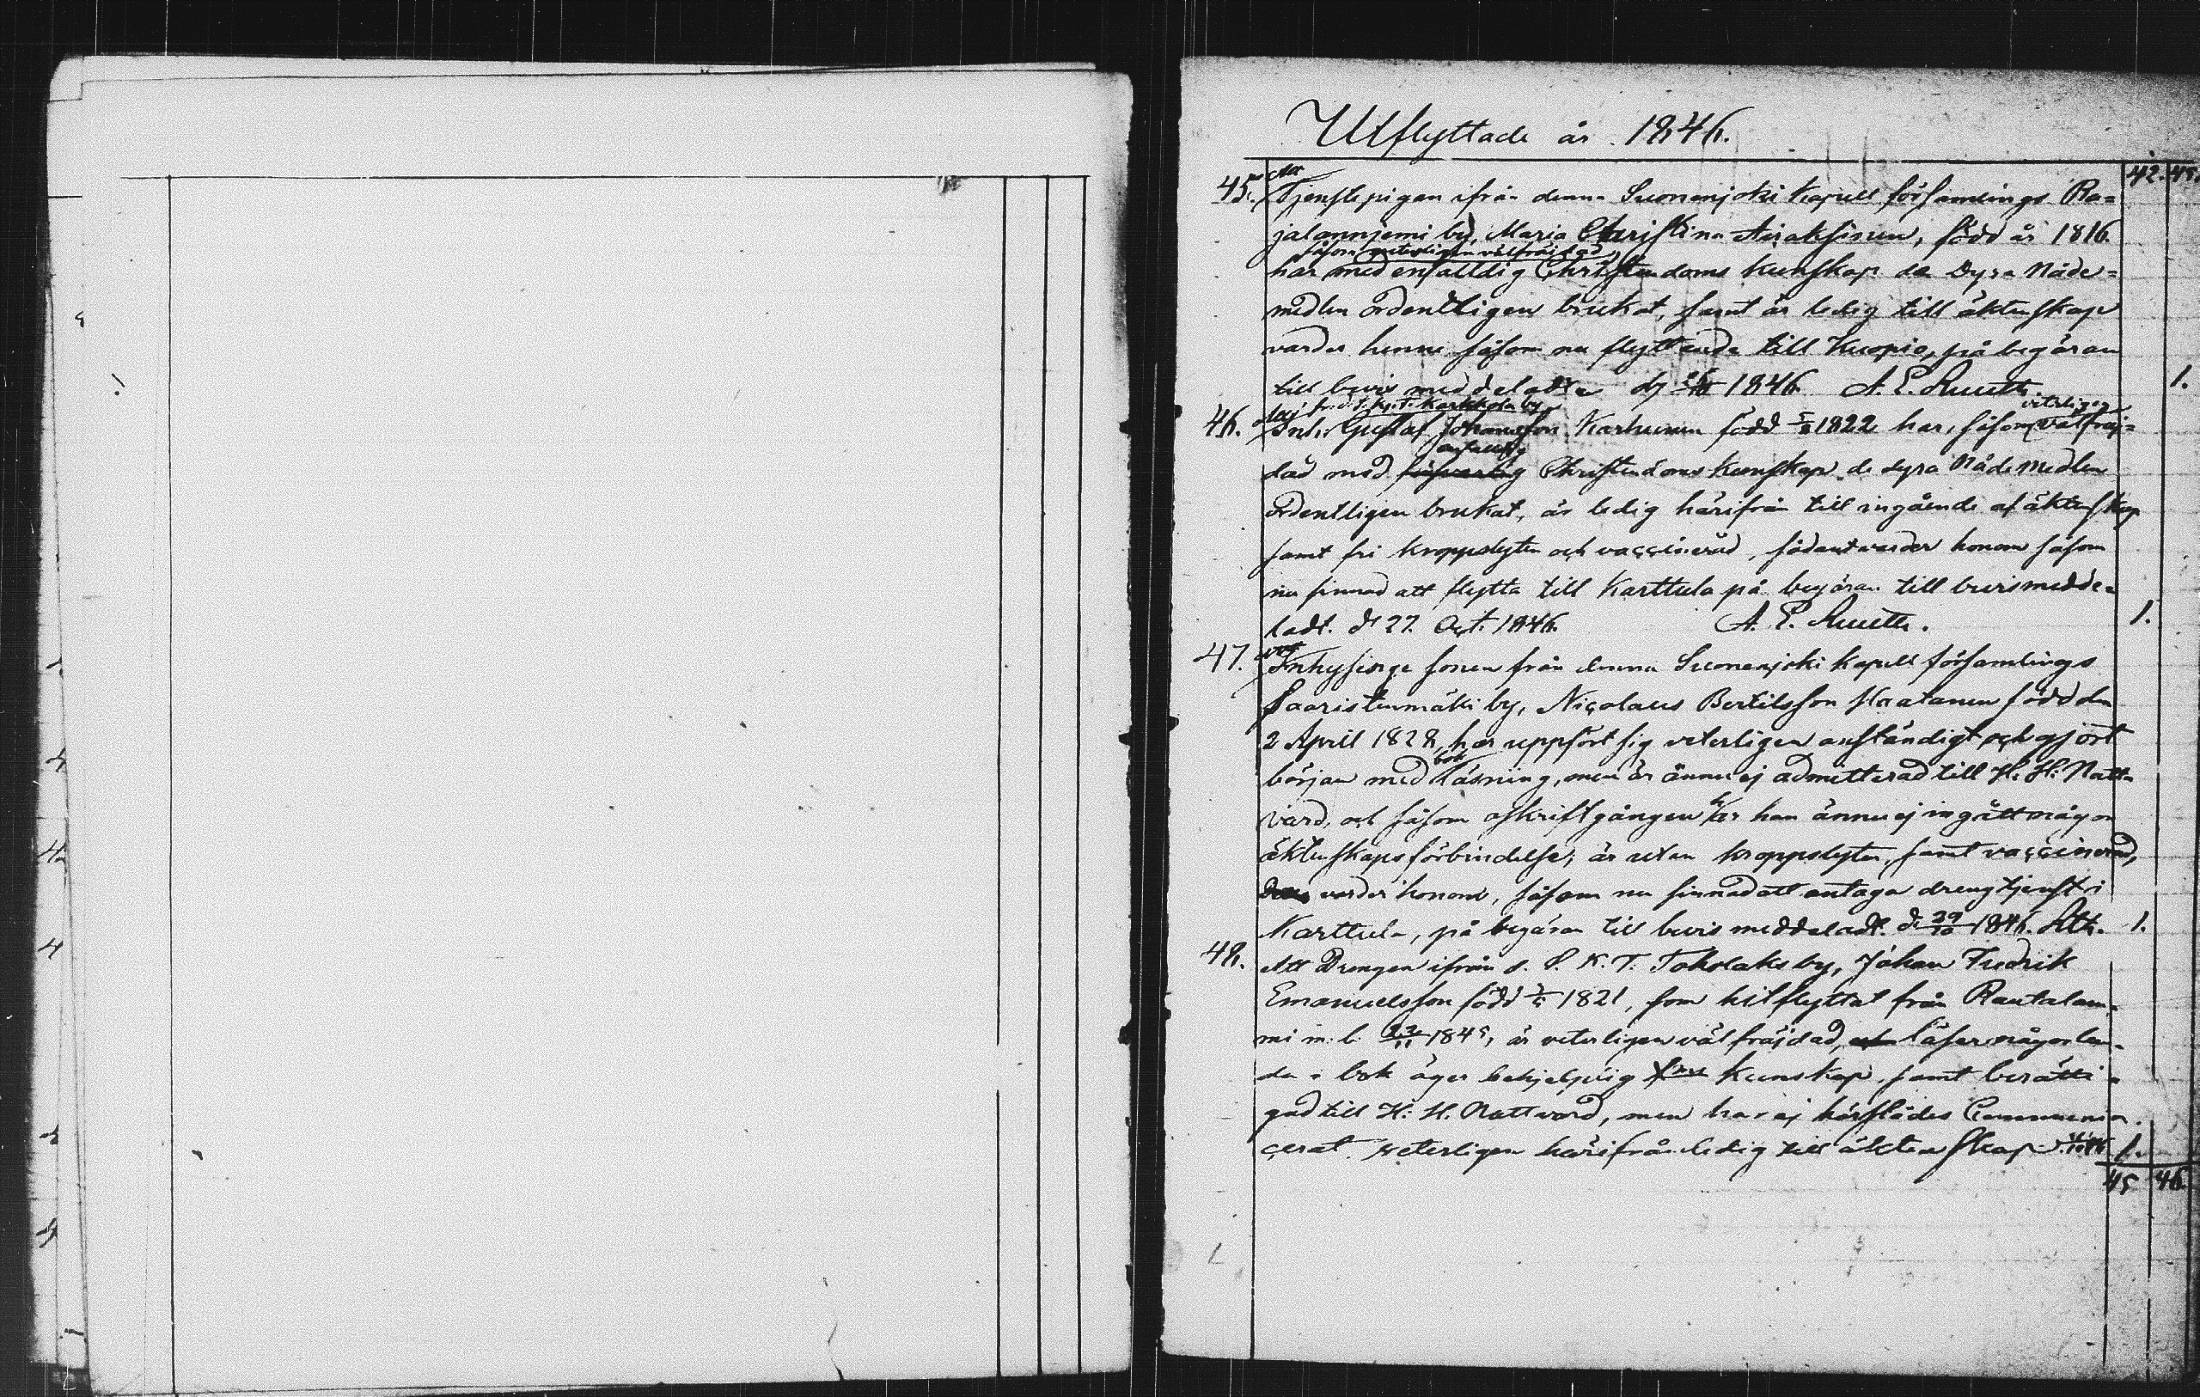 Utflyttade år 1846.
42. 45.
45. Att Tjenstepigan ifrån denna Suonenjoki Kapell församlings Ra=
jalannjemi by, Maria Christina Airaksinen, född år 1816.
såsom veterligen välfräjdad
har med enfalldig Christendoms kunskap de Dyra Nåde=
medlen ordentligen brukat, samt är ledig till äktenskap
varder henne såsom nu flyttande till Kuopio, på begäran
till bevis meddeladt 1846. A. E. Ruuth 1.
Karkkola by
46. Inh. Gustaf Johansson Karhunen född 1822 har, såsom veterligen välfräj=
enfalldig
dad med Christendoms kunskap de dyra Nådemedlen
ordentligen brukat, är ledig härifrån till ingående af äktenskap
samt fri kroppslyten och vaccinerad, sådant varder honom såsom
nu sinnad att flytta till Karttula på begäran till bevis medde=
ladt. d 27. Oct. 1846. A. E. Ruuth. 1.
47. Att Inhysinge sonen från denna Suonenjoki kapell församlings
Saaristenmäki by, Nicolaus Bertilsson Kaatanen född den
2 April 1828, har uppfört sig veterligen anständigt och gjort
början med bok läsning, men är ännu ej admitterad till H. H. Natt=
vard, och såsom afskriftgången har han ännu ej ingått någon
äktenskapsförbindelse, är utan kroppslyten, samt vaccinerad,
varder honom, såsom nu sinnad att antaga drengtjenst i
Karttula, på begäran till bevis meddeladt. d. 29/10 1846. 1.
48. Att Drengen ifrån d. S. K. F. Toholaks by, Johan Fredrik
Emanuelsson född 1821, som hitflyttat från Rautalam=
mi m. b. 23/11 1845, är veterligen välfräjdad, läser någorlun=
da i bok äger behjelplig kunskap samt berätti=
gad till H. H. Nattvard, men har ej härstädes Communi
cerat. veterligen härifrån ledig till äktenskap 1.
45 46.